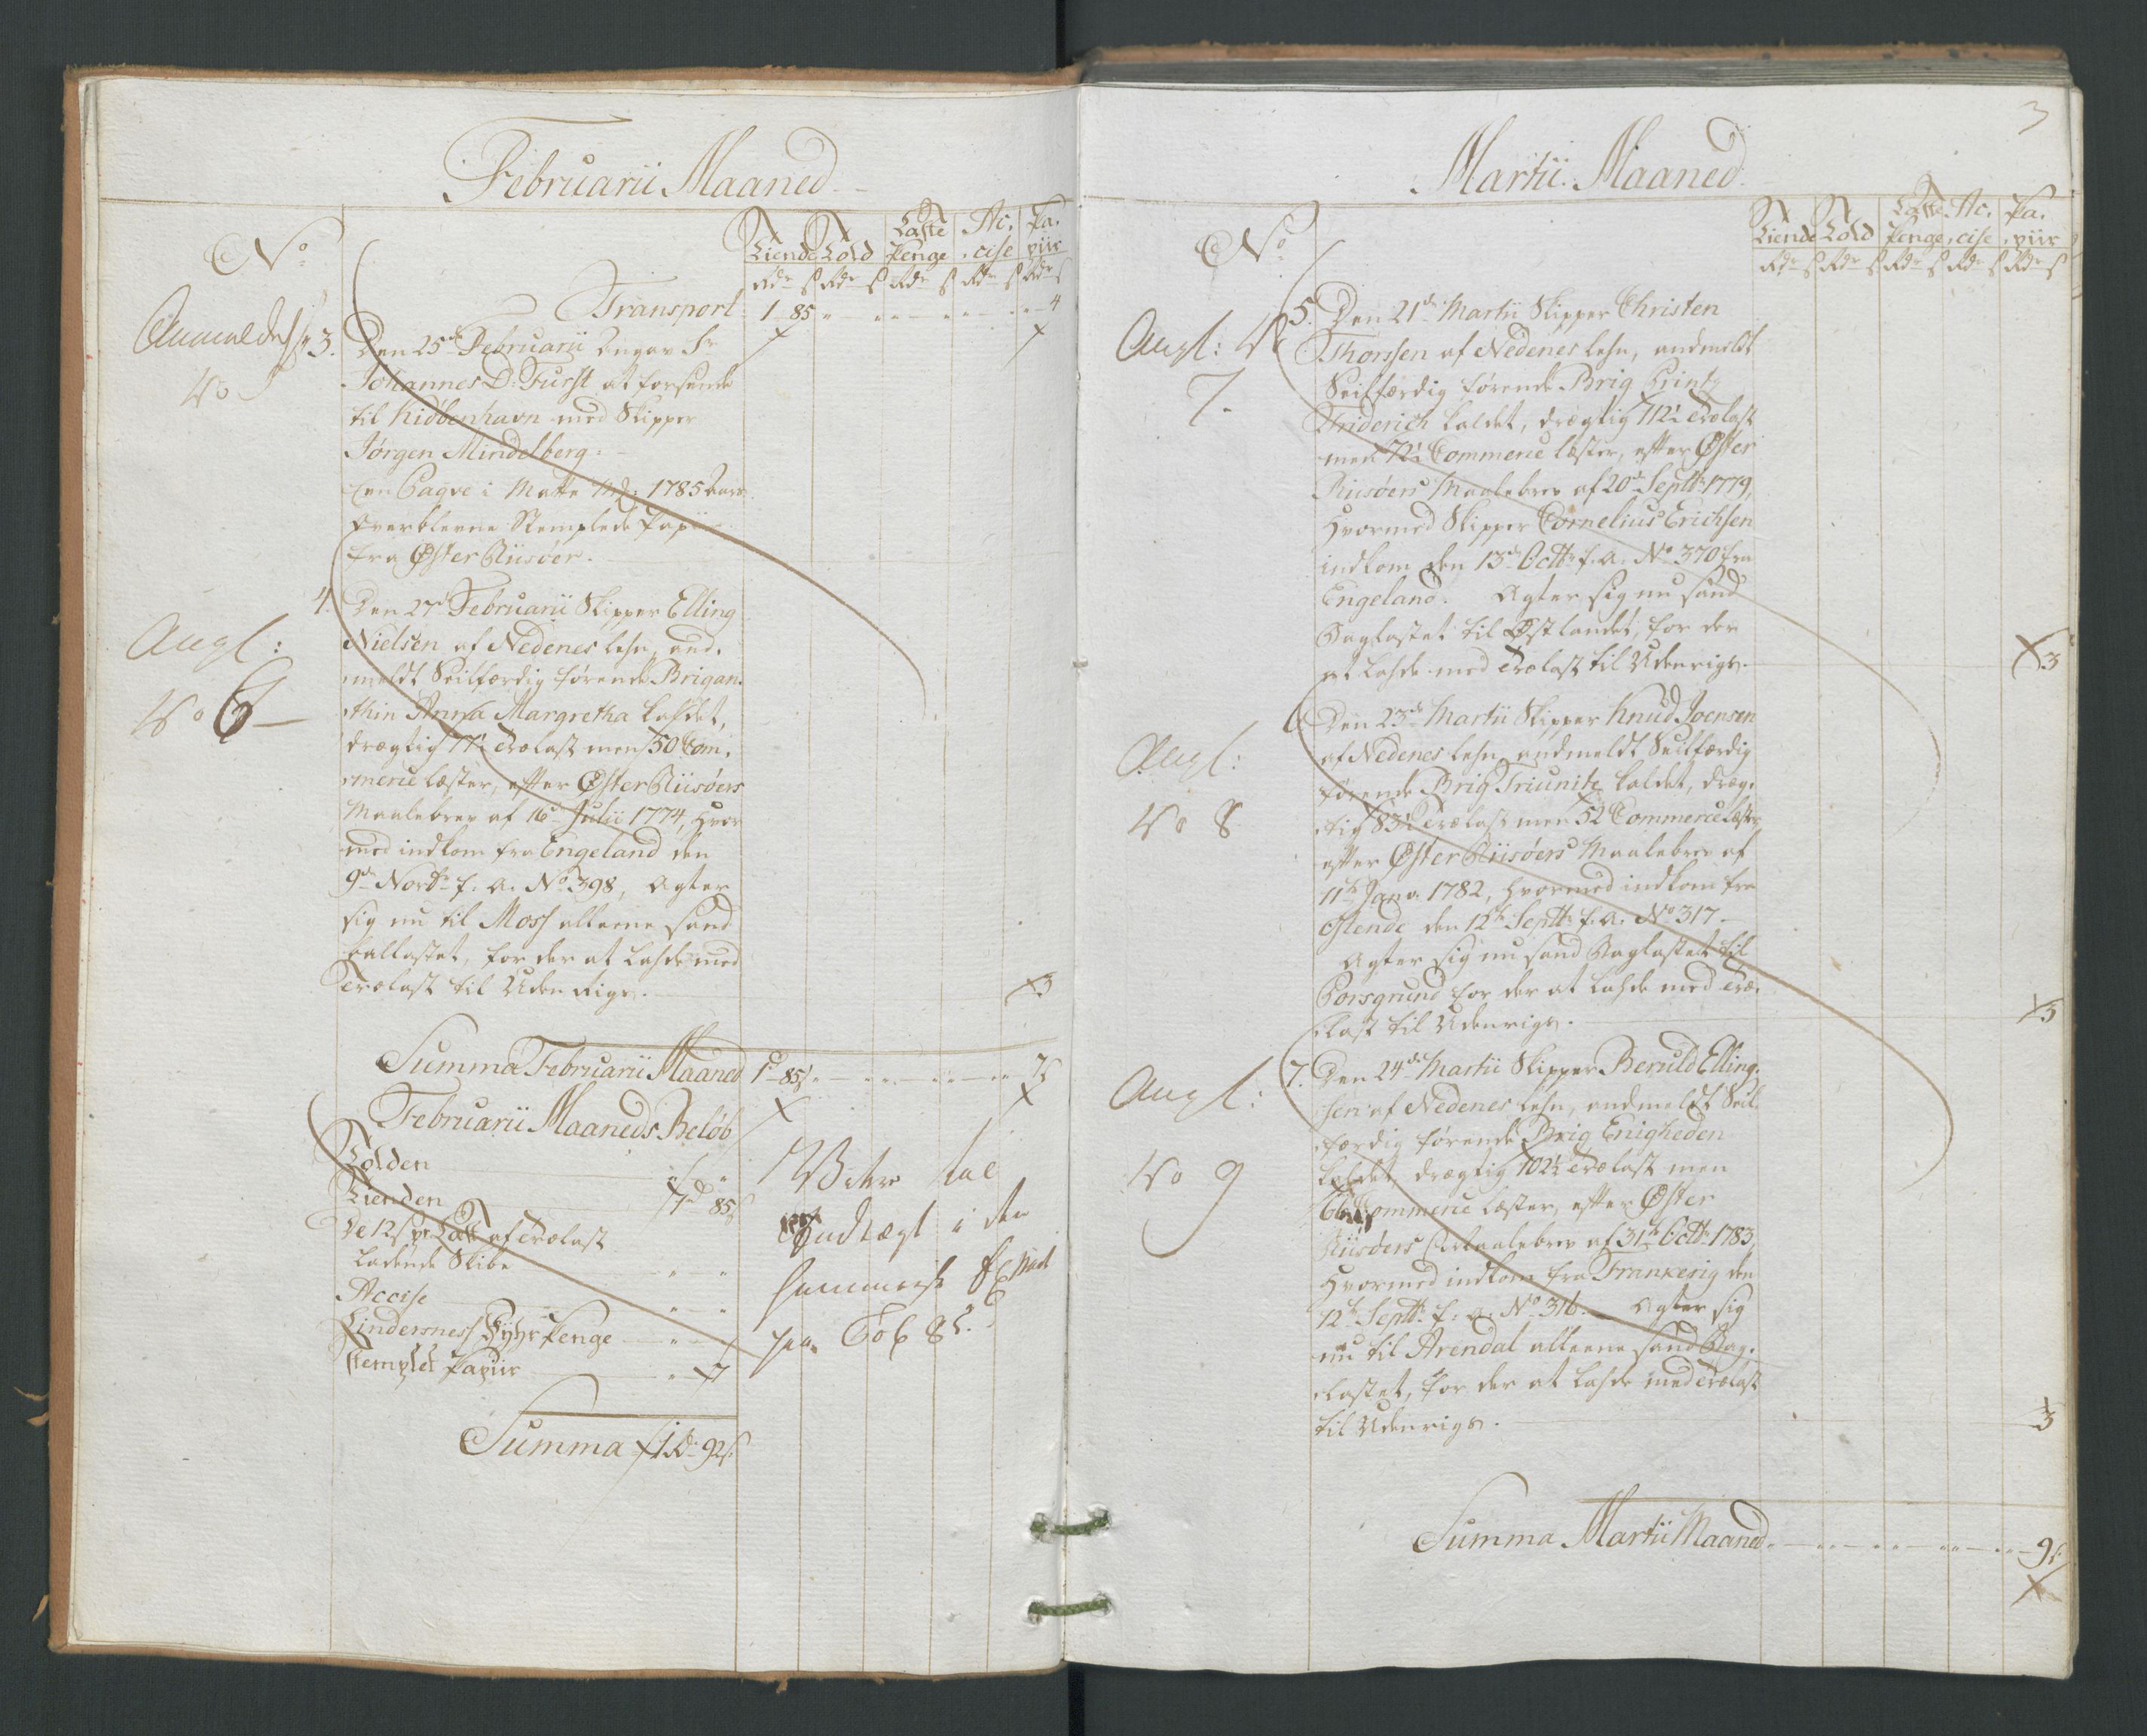 Februarii Maaned
No
Tiende Told Laste Penge Ac, cise Pa, piir
Rdr s Rdr s Rdr s Rdr s Rdr s
Transport 1 85 4
Anmeldelse
No 5
3. Den 25de Februarii Angav Sr
Johannes D: Furst at forsende
til Kiøbenhavn med Skipper
Jørgen Mindelberg.
Een Paqve i Matte 1785 Aars
Overblevne Stemplede Papiir
fra ØsterRiisøer.
Angl:
No 6
4. Den 27de Februarii Skipper Elling
Nielsen af Nedenes Lehn, and,
meldt Seilfærdig førende Brigan,
thin Anna Margretha kaldet,
drægtig 77½ Trælast men 50 Com,
mercie læster, efter ØsterRiisøers
Maalebrev af 16de Julii 1774, Hvor
med indkom fra Engeland den
9de Novbr f. A. No 398, Agter
sig nu til Moss alleene sand
ballastet, for der at Lahde med
Trælast til Uden Rigs. 3
Summa Februarii Maaned 1d 85s 7s
Februarii Maaneds Beløb
Tolden
Tienden 1d 85s
De 12s pr Læst af Trælast
Ladende Skibe
Accise
Lindersness Fyhr Penge
Stemplet Papiir 7
Summa 1d 92s
indlægt i den
Summariske
paa Fol 8
3
Martii Maaned
No
Tiende Told Laste Penge Ac, cise Pa, piir
Rdr s Rdr s Rdr s Rdr s Rdr s
Angl: No
7.
5. Den 21de Martii Skipper Christen
Thorssen af Nedenes Lehn, andmeldt
Seilfærdig førende Brig Printz
Friderich kaldet, drægtig 112½ Trælast
men 72½ Commercie læster, efter Øster
Riisøers Maalebrev af 20de Septbr 1779,
Hvormed Skipper Cornelius Erichsen
indkom den 13de Octbr f. A. No 370 fra
Engeland. Agter sig nu sand
Baglastet til Østlandet, for der
at Lahde med Trælast til Udenrigs. 3
Angl:
No 8
6. Den 23de Martii Skipper Knud Joensen
af Nedenes Lehn andmeldt Seilfærdig
førende Brig Triunitz kaldet, dræg,
tig 83½ Trælast men 52 Commercelæster
efter ØsterRiisøers Maalebrev af
11te Janv. 1782, Hvormed indkom fra
Ostende den 12te Septbr f. A. No 317.
Agter sig nu sand Baglastet til
Porsgrund for der at Lahde med Træ,
last til Udenrigs. 3
Angl:
No 9
7. Den 24de Martii Skipper Beruld Elling,
sen af Nedenes Lehn, andmeldt Seil,
færdig førende Brig Enigheden
kaldet, drægtig 102½ Trælast men
66 Commercie læster, efter Øster
Riisøers Maalebrev af 31te Octbr 1783,
Hvormed indkom fra Frankerig den
12te Septbr f. A. No 316. Agter sig
nu til Arendal alleene sand Bag,
lastet, for der at Lahde med Trælast
til Udenrigs. 3
Summa Martii Maaned 9s